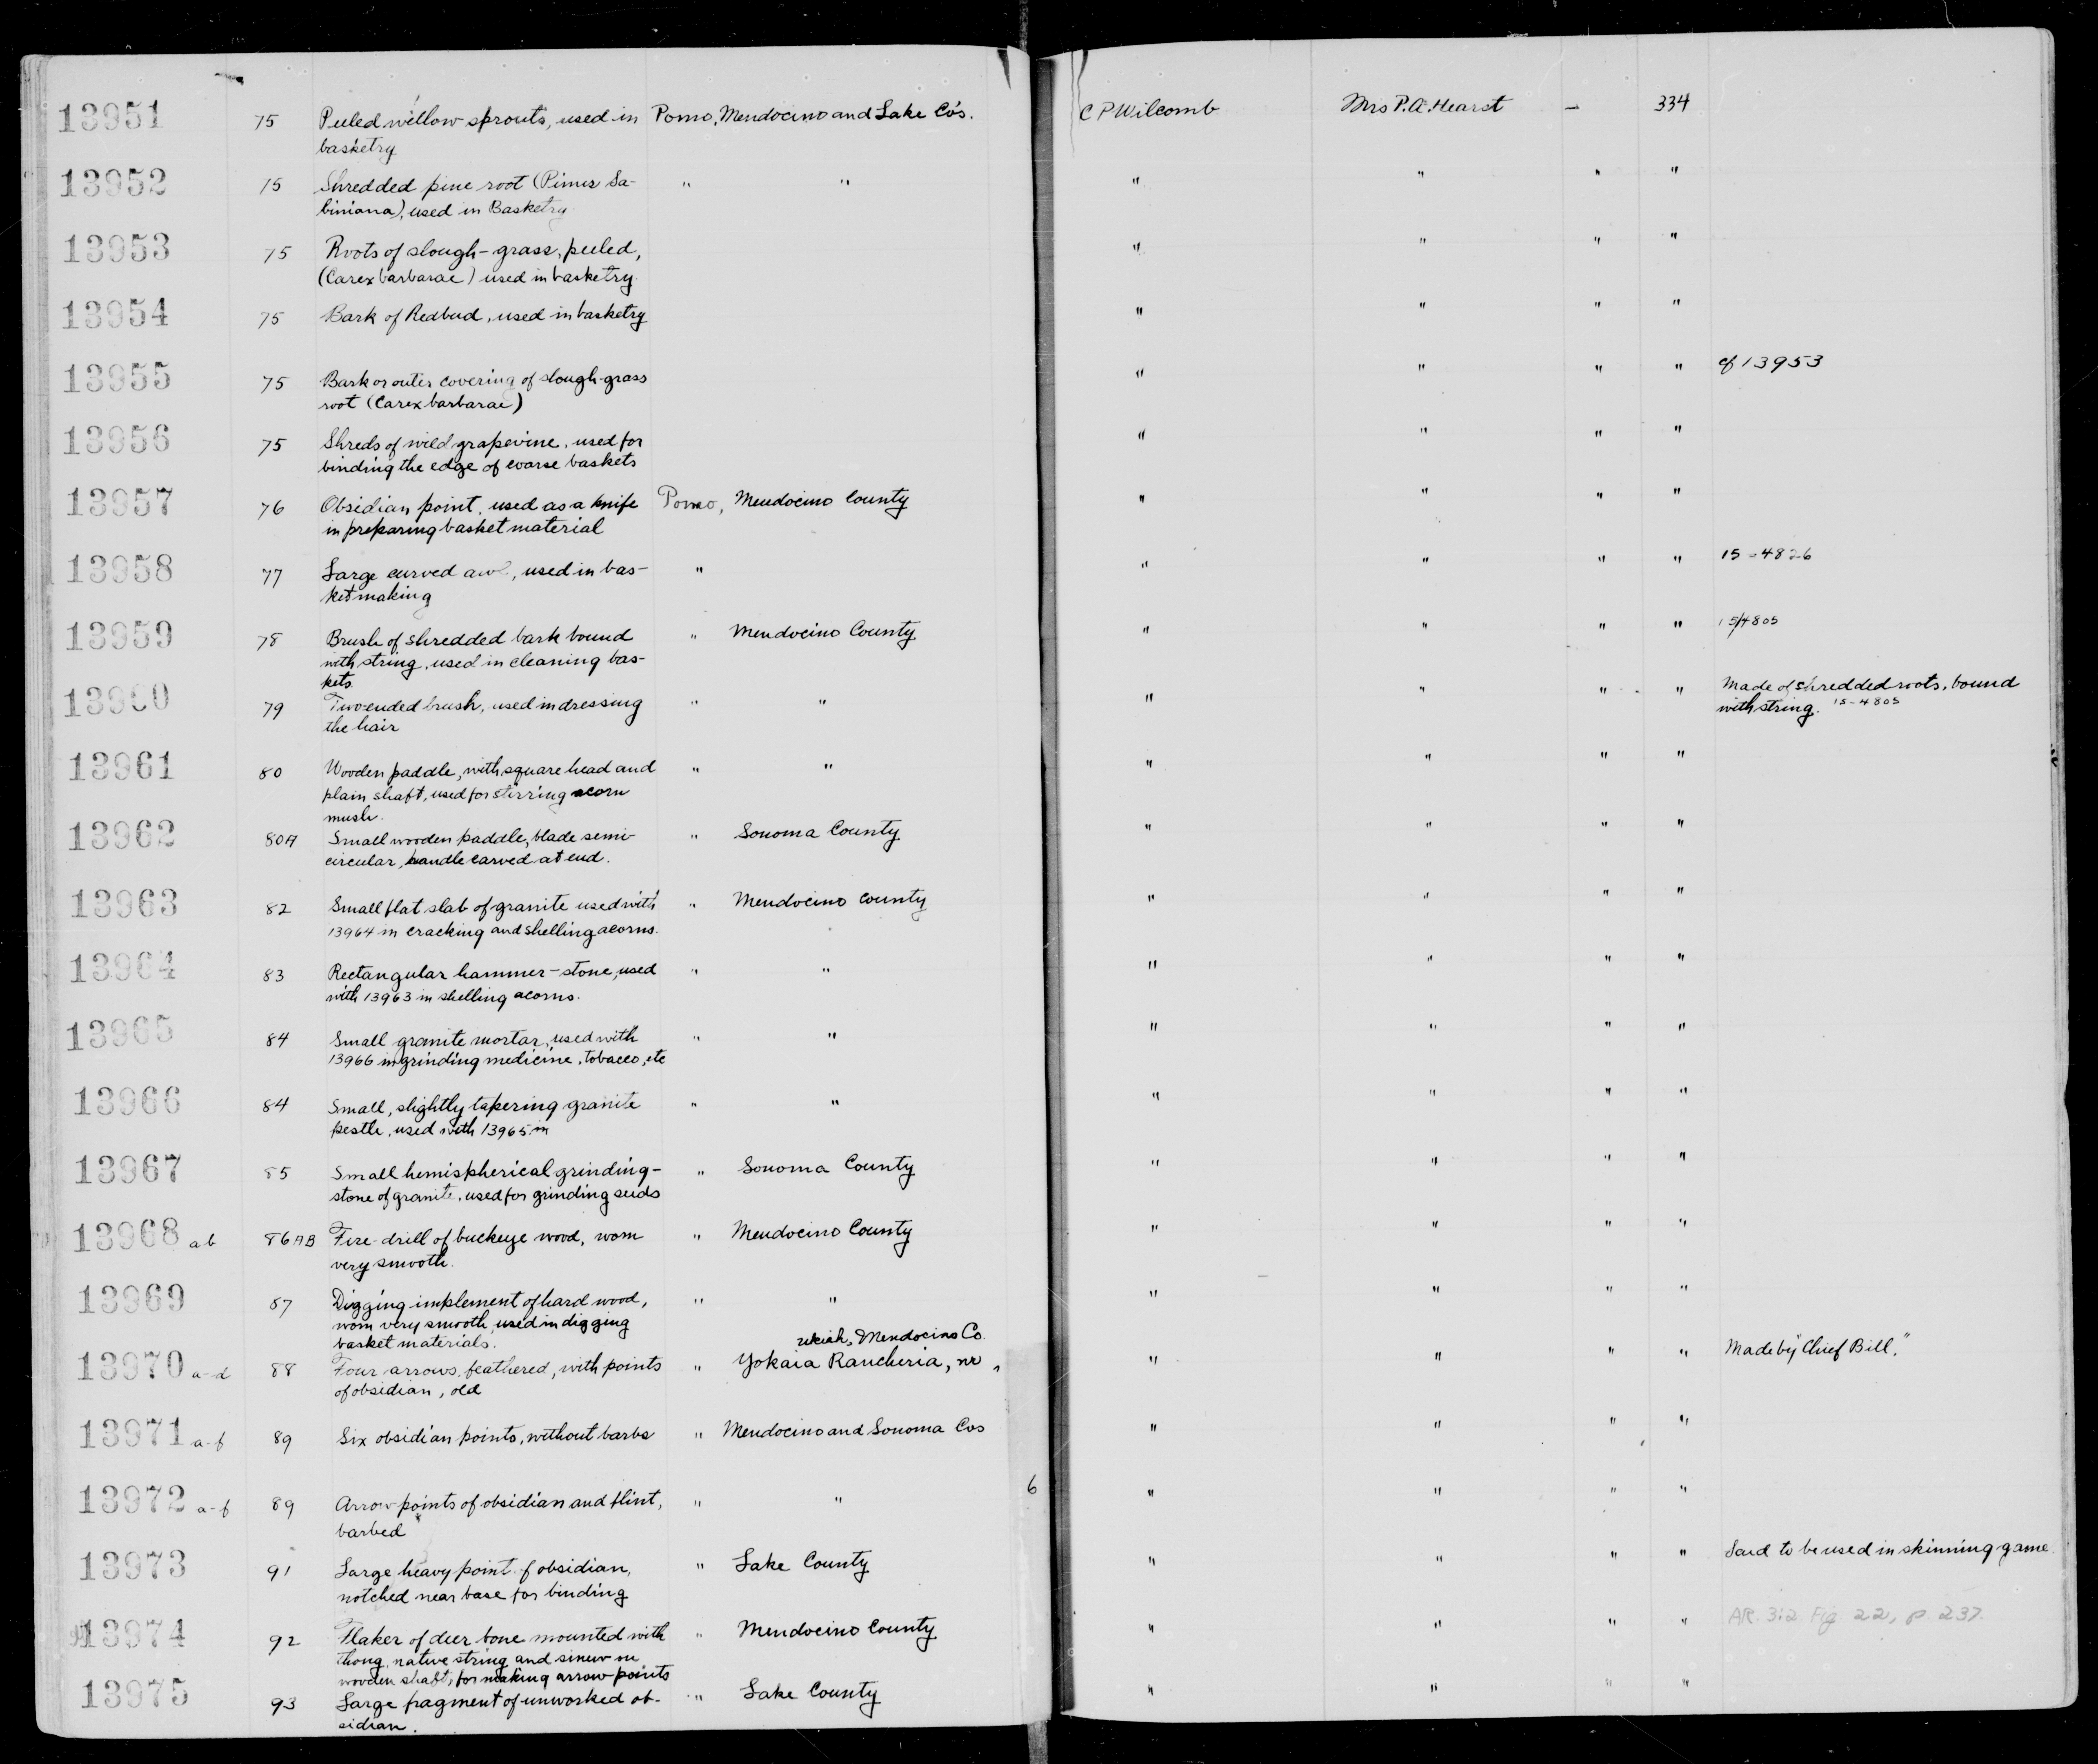 13951 75 Peeled willow sprouts, used in Pomo, Mendocino and Lake Co's. C P Wilcomb Mrs P. A. Hearst — 334
basketry
13952 75 Shredded pine root (Pinus Sa- " " " " " "
biniana), used in Basketry
13953 75 Roots of slough-grass, peeled, " " " "
(Carex barbarae) used in basketry.
13954 75 Bark of Redbud, used in basketry " " " "
13955 75 Bark or outer covering of slough-grass " " " " cf 13953
root (Carex barbarae)
13956 75 Shreds of wild grapevine, used for " " " "
binding the edge of coarse baskets
13957 76 Obsidian point, used as a knife Pomo, Mendocino County " " " "
in preparing basket material
13958 77 Large curved awl, used in bas- " " " " " 15-4826
ketmaking
13959 78 Brush of shredded bark bound " Mendocino County " " " " 15/4805
with string, used in cleaning bas-
kets.
13960 79 Two-ended brush, used in dressing " " " " " " Made of shredded roots, bound
the hair with string. 15-4805
13961 80 Wooden paddle, with square head and " " " " " "
plain shaft, used for stirring acorn
mush.
13962 80A Small wooden paddle, blade semi- " Sonoma County " " " "
circular, handle carved at end.
13963 82 Small flat slab of granite used with " Mendocino County " " " "
13964 in cracking and shelling acorns.
13964 83 Rectangular hammer-stone, used " " " " " "
with 13963 in shelling acorns.
13965 84 Small granite mortar, used with " " " " " "
13966 in grinding medicine, tobacco, etc
13966 84 Small, slightly tapering granite " " " " " "
pestle, used with 13965 in
13967 85 Small hemispherical grinding- " Sonoma County " " " "
stone of granite, used for grinding seeds
13968 ab 86AB Fire-drill of buckeye wood, worn " Mendocino County " " " "
very smooth.
13969 87 Digging implement of hard wood, " " " " " "
worn very smooth, used in digging
basket materials. Ukiah, Mendocino Co.
13970 a-d 88 Four arrows, feathered, with points " Yokaia Rancheria, nr " " " " Made by "Chief Bill."
of obsidian, old
13971 a-f 89 Six obsidian points, without barbs " Mendocino and Sonoma Cos " " " "
13972 a-f 89 Arrow points of obsidian and flint, " " 6 " " " "
barbed
13973 91 Large heavy point of obsidian, " Lake County " " " " Said to be used in skinning game.
notched near base for binding
13974 92 Flaker of deer bone mounted with " Mendocino County " " " " AR. 3:2 Fig 22, p 237.
thong, native string and sinew on
wooden shaft, for making arrow-points
13975 93 Large fragment of unworked ob- " Lake County " " " "
sidian.